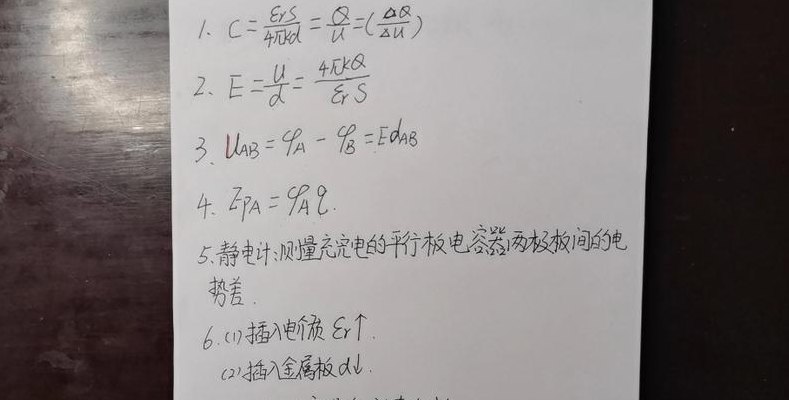 1. C = εrS/4πkd = Q/U = (ΔQ/ΔU)
2. E = U/d = 4πkQ/εrS
3. UAB = φA - φB = EdAB
4. EPA = φA q.
5. 静电计:测量充完电的平行板电容器两极板间的电
势差.
6. (1) 插入电介质 εr↑.
(2) 插入金属板 d↓.